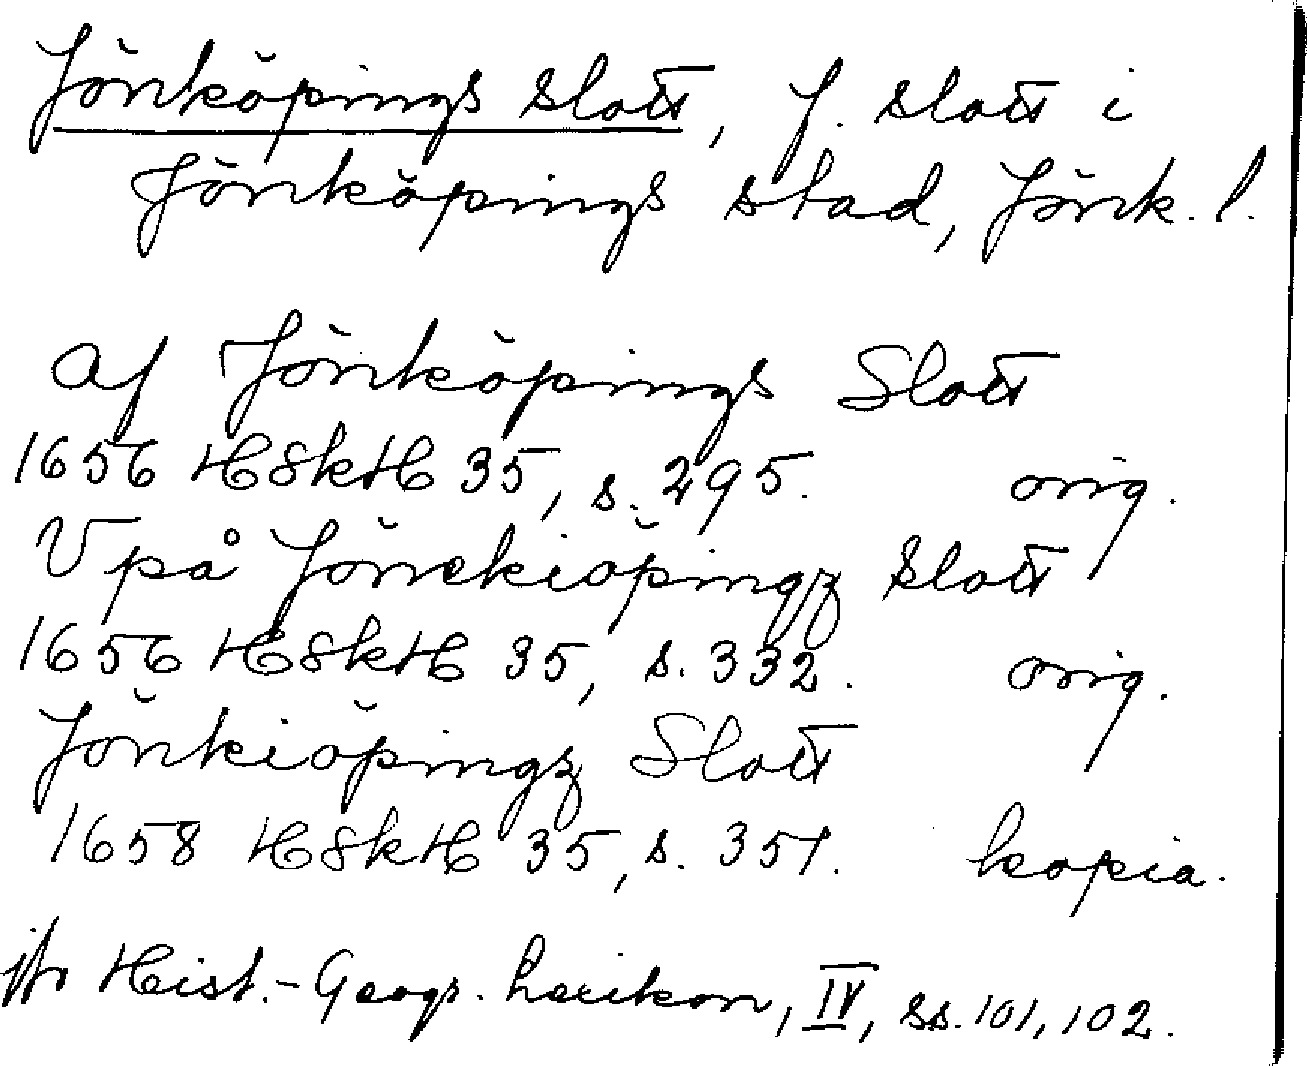 Jönköpings slott, f. slott i
Jönköpings stad, Jönk. l.
af Jönköpings Slott
1656 HSkH 35, s. 295. orig.
Vpå Jönekiöpingz slott
1656 HSkH 35, s. 332. orig.
Jönkiöpingz Slott
1658 HSkH 35, s. 351. kopia.
jfr Hist.-Geogr. Lexikon, IV, ss. 101, 102.